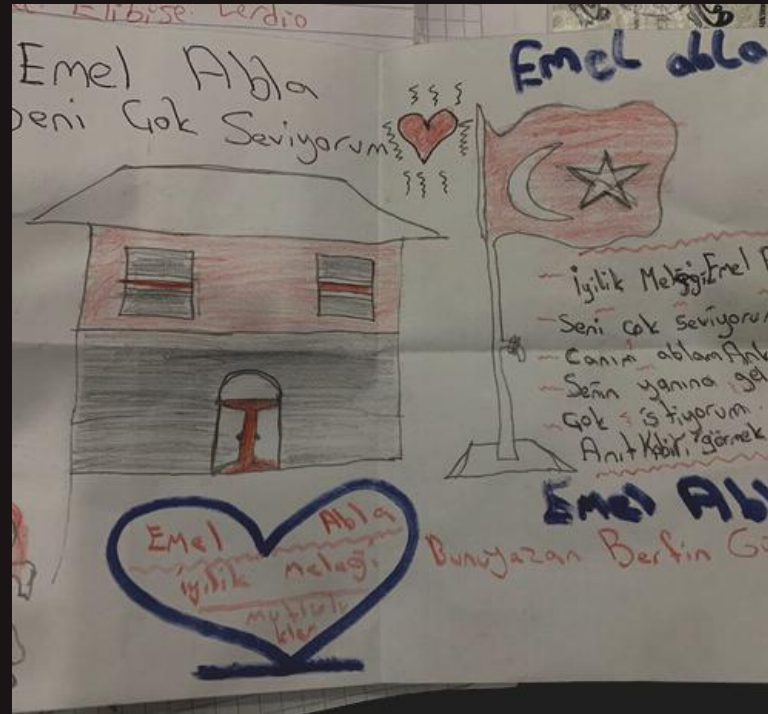 Elibise verdio
Emel Abla
Seni Çok Seviyorum
Emel abla
İyilik Meleği Emel
Seni çok seviyorum
Canım ablam Ank
Senin yanına gel
Çok istiyorum
Anıt Kabiri, görmek
Emel Ab
Emel Abla
iyilik meleği
mutlulu
klar
Bunu yazan Berfin Gü